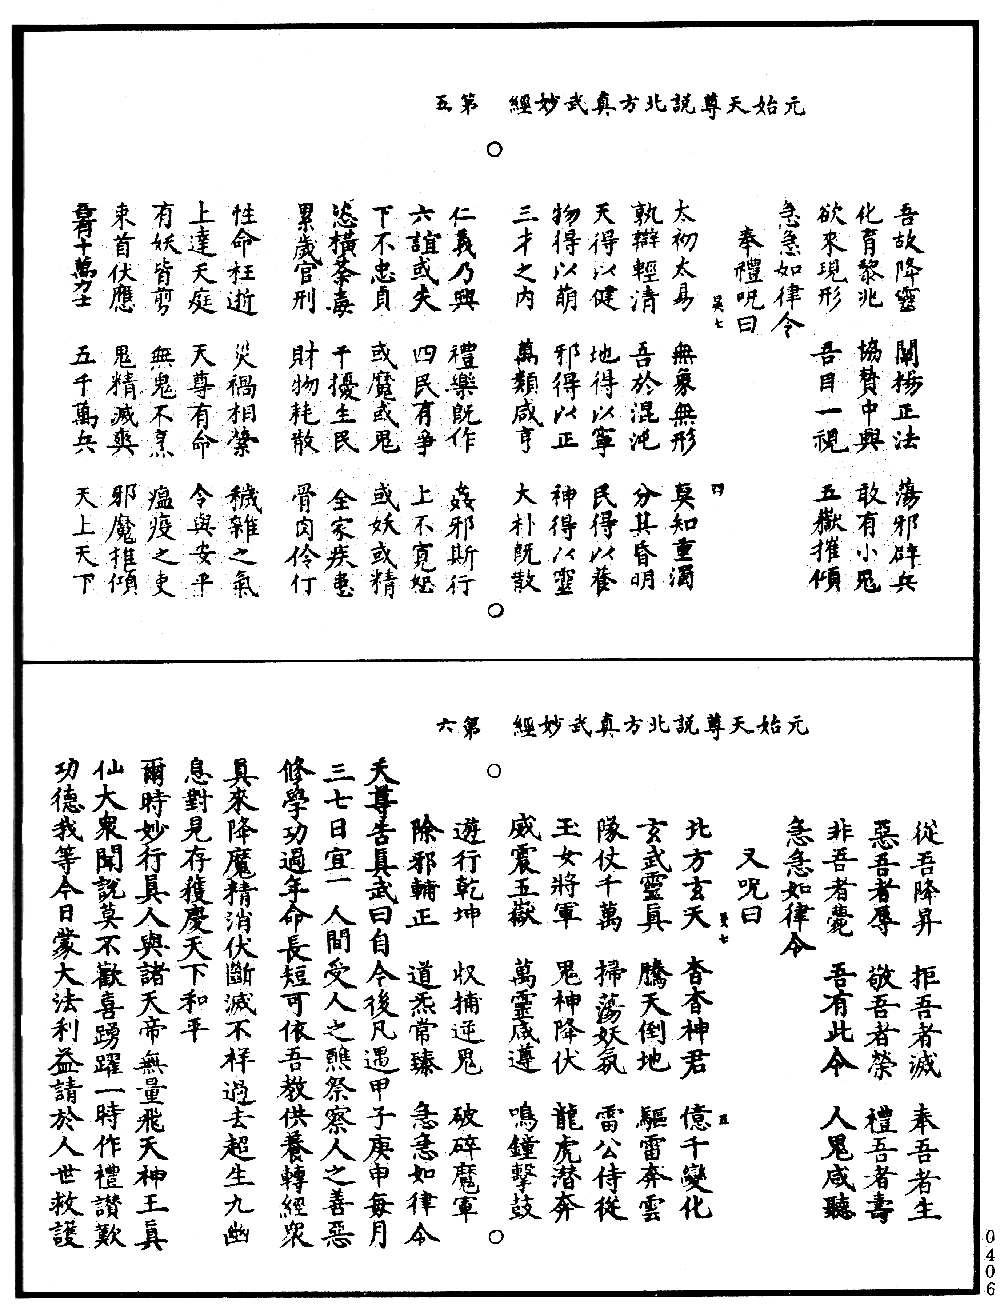 元始天尊說北方真武妙經　第五
吾故降靈　闡揚正法　蕩邪辟兵
化育黎兆　協贊中興　敢有小鬼
欲來現形　吾目一視　五嶽摧傾
急急如律令
奉禮呪曰
吳七　四
太初太易　無象無形　莫知重濁
孰辯輕清　吾於混沌　分其昏明
天得以健　地得以寧　民得以養
物得以萌　邪得以正　神得以靈
三才之內　萬類咸亨　大朴旣散
仁義乃興　禮樂旣作　姦邪斯行
六誼或失　四民有爭　上不寬恕
下不忠貞　或魔或鬼　或妖或精
恣橫荼毒　干擾生民　全家疾患
累歲官刑　財物耗散　骨肉伶仃
性命枉逝　災禍相縈　穢雜之氣
上達天庭　天尊有命　令與安平
有妖皆剪　無鬼不烹　瘟疫之吏
束首伏應　鬼精滅爽　邪魔摧傾
吾有十萬力士　五千萬兵　天上天下
元始天尊說北方真武妙經　第六
從吾降昇　拒吾者滅　奉吾者生
惡吾者辱　敬吾者榮　禮吾者壽
非吾者薨　吾有此令　人鬼咸聽
急急如律令
又呪曰
吳七　五
北方玄天　杳杳神君　億千變化
玄武靈真　騰天倒地　驅雷奔雲
隊仗千萬　掃蕩妖氛　雷公侍從
玉女將軍　鬼神降伏　龍虎潛奔
威震五嶽　萬靈咸遵　鳴鐘擊鼓
遊行乾坤　收捕逆鬼　破碎魔軍
除邪輔正　道炁常臻　急急如律令
天尊告真武曰自今後凡遇甲子庚申每月
三七日宜一人間受人之醮祭察人之善惡
修學功過年命長短可依吾教供養轉經衆
真來降魔精消伏斷滅不祥過去超生九幽
息對見存獲慶天下和平
爾時妙行真人與諸天帝無量飛天神王真
仙大衆聞說莫不歡喜踴躍一時作禮讚歎
功德我等今日蒙大法利益請於人世救護
0406